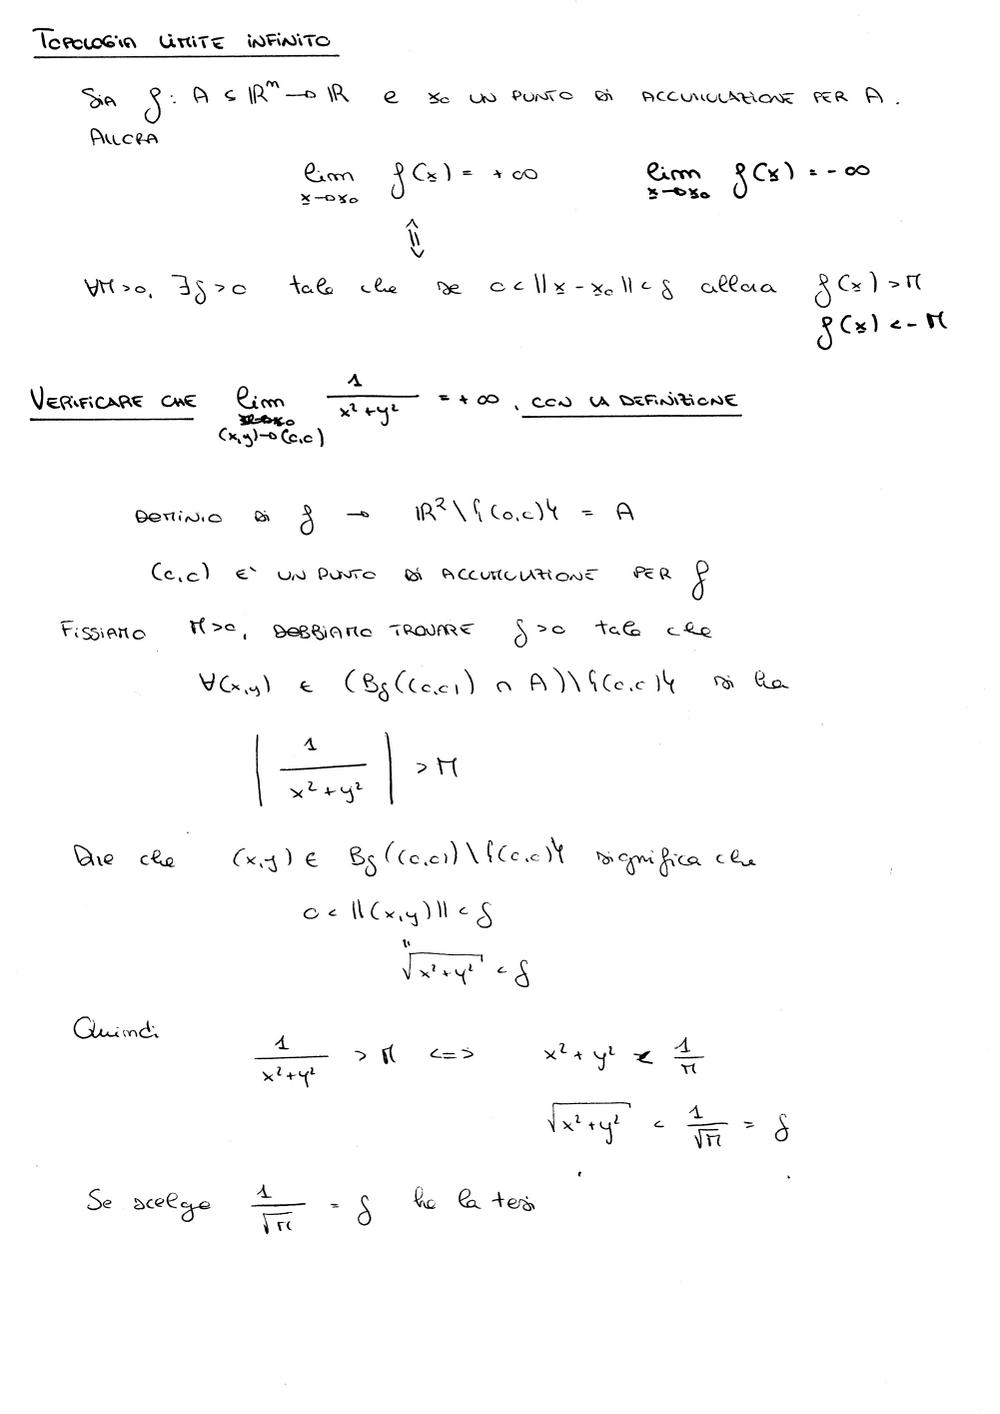 TOPOLOGIA LIMITE INFINITO
SIA f: A ⊆ ℝⁿ → ℝ e x₀ UN PUNTO DI ACCUMULAZIONE PER A.
ALLORA
lim x→x₀ f(x) = +∞ lim x→x₀ f(x) = -∞
⇕
∀M>0, ∃δ>0 tale che se 0<||x - x₀||<δ allora f(x) > M
f(x) < -M
VERIFICARE CHE lim (x,y)→(0,0) 1/(x²+y²) = +∞, CON LA DEFINIZIONE
DOMINIO DI f → ℝ²\{(0,0)} = A
(0,0) E' UN PUNTO DI ACCUMULAZIONE PER f
FISSIAMO M>0, DOBBIAMO TROVARE δ>0 tale che
∀(x,y) ∈ (Bδ((0,0)) ∩ A)\{(0,0)} si ha
|1/(x²+y²)| > M
Dire che (x,y) ∈ Bδ((0,0))\{(0,0)} significa che
0 < ||(x,y)|| < δ
"
√(x²+y²) < δ
Quindi
1/(x²+y²) > M <=> x²+y² < 1/M
√(x²+y²) < 1/√M = δ
Se scelgo 1/√M = δ ho la tesi